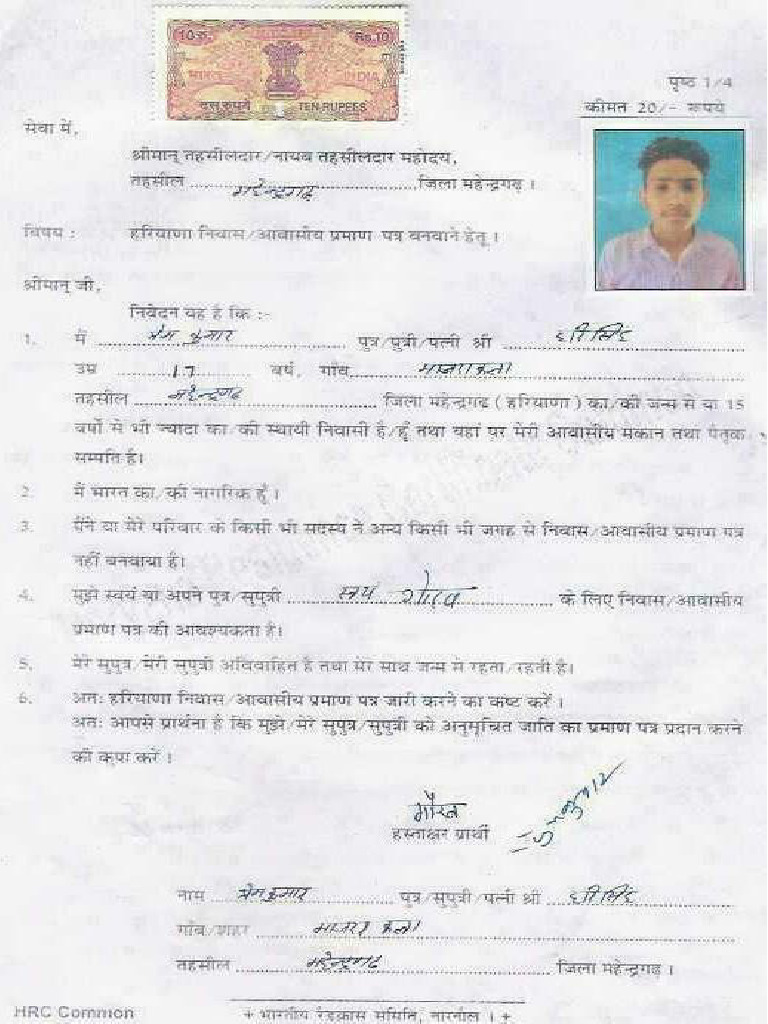 10 रु. Rs.10
भारत INDIA
दस रुपये TEN RUPEES
पृष्ठ 1/4
कीमत 20/- रूपये
सेवा में,
श्रीमान् तहसीलदार/नायब तहसीलदार महोदय,
तहसील महेन्द्रगढ़ जिला महेन्द्रगढ़ ।
विषय : हरियाणा निवास/आवासीय प्रमाण पत्र बनवाने हेतू ।
श्रीमान् जी,
निवेदन यह है कि :-
1. मैं प्रेम कुमार पुत्र/पुत्री/पत्नी श्री हरि सिंह
उम्र 17 वर्ष, गाँव
तहसील महेन्द्रगढ़ जिला महेन्द्रगढ़ (हरियाणा) का/की जन्म से या 15
वर्षो से भी ज्यादा का/की स्थायी निवासी है/हूँ तथा वहां पर मेरी आवासीय मकान तथा पैतृक
सम्पति है।
2. मैं भारत का/की नागरिक हूँ ।
3. मैंने या मेरे परिवार के किसी भी सदस्य ने अन्य किसी भी जगह से निवास/आवासीय प्रमाण पत्र
नहीं बनवाया है।
4. मुझे स्वयं या अपने पुत्र/सुपुत्री के लिए निवास/आवासीय
प्रमाण पत्र की आवश्यकता है।
5. मेरे सुपुत्र/मेरी सुपुत्री अविवाहित है तथा मेरे साथ जन्म से रहता/रहती है।
6. अतः हरियाणा निवास/आवासीय प्रमाण पत्र जारी करने का कष्ट करें ।
अतः आपसे प्रार्थना है कि मुझे/मेरे सुपुत्र/सुपुत्री को अनुसूचित जाति का प्रमाण पत्र प्रदान करने
की कृपा करें ।
गौरव
हस्ताक्षर प्रार्थी
नाम प्रेम कुमार पुत्र/सुपुत्री/पत्नी श्री हरि सिंह
गाँव/शहर
तहसील महेन्द्रगढ़ जिला महेन्द्रगढ़ ।
HRC Common
+ भारतीय रैडक्रास समिति, नारनौल । +